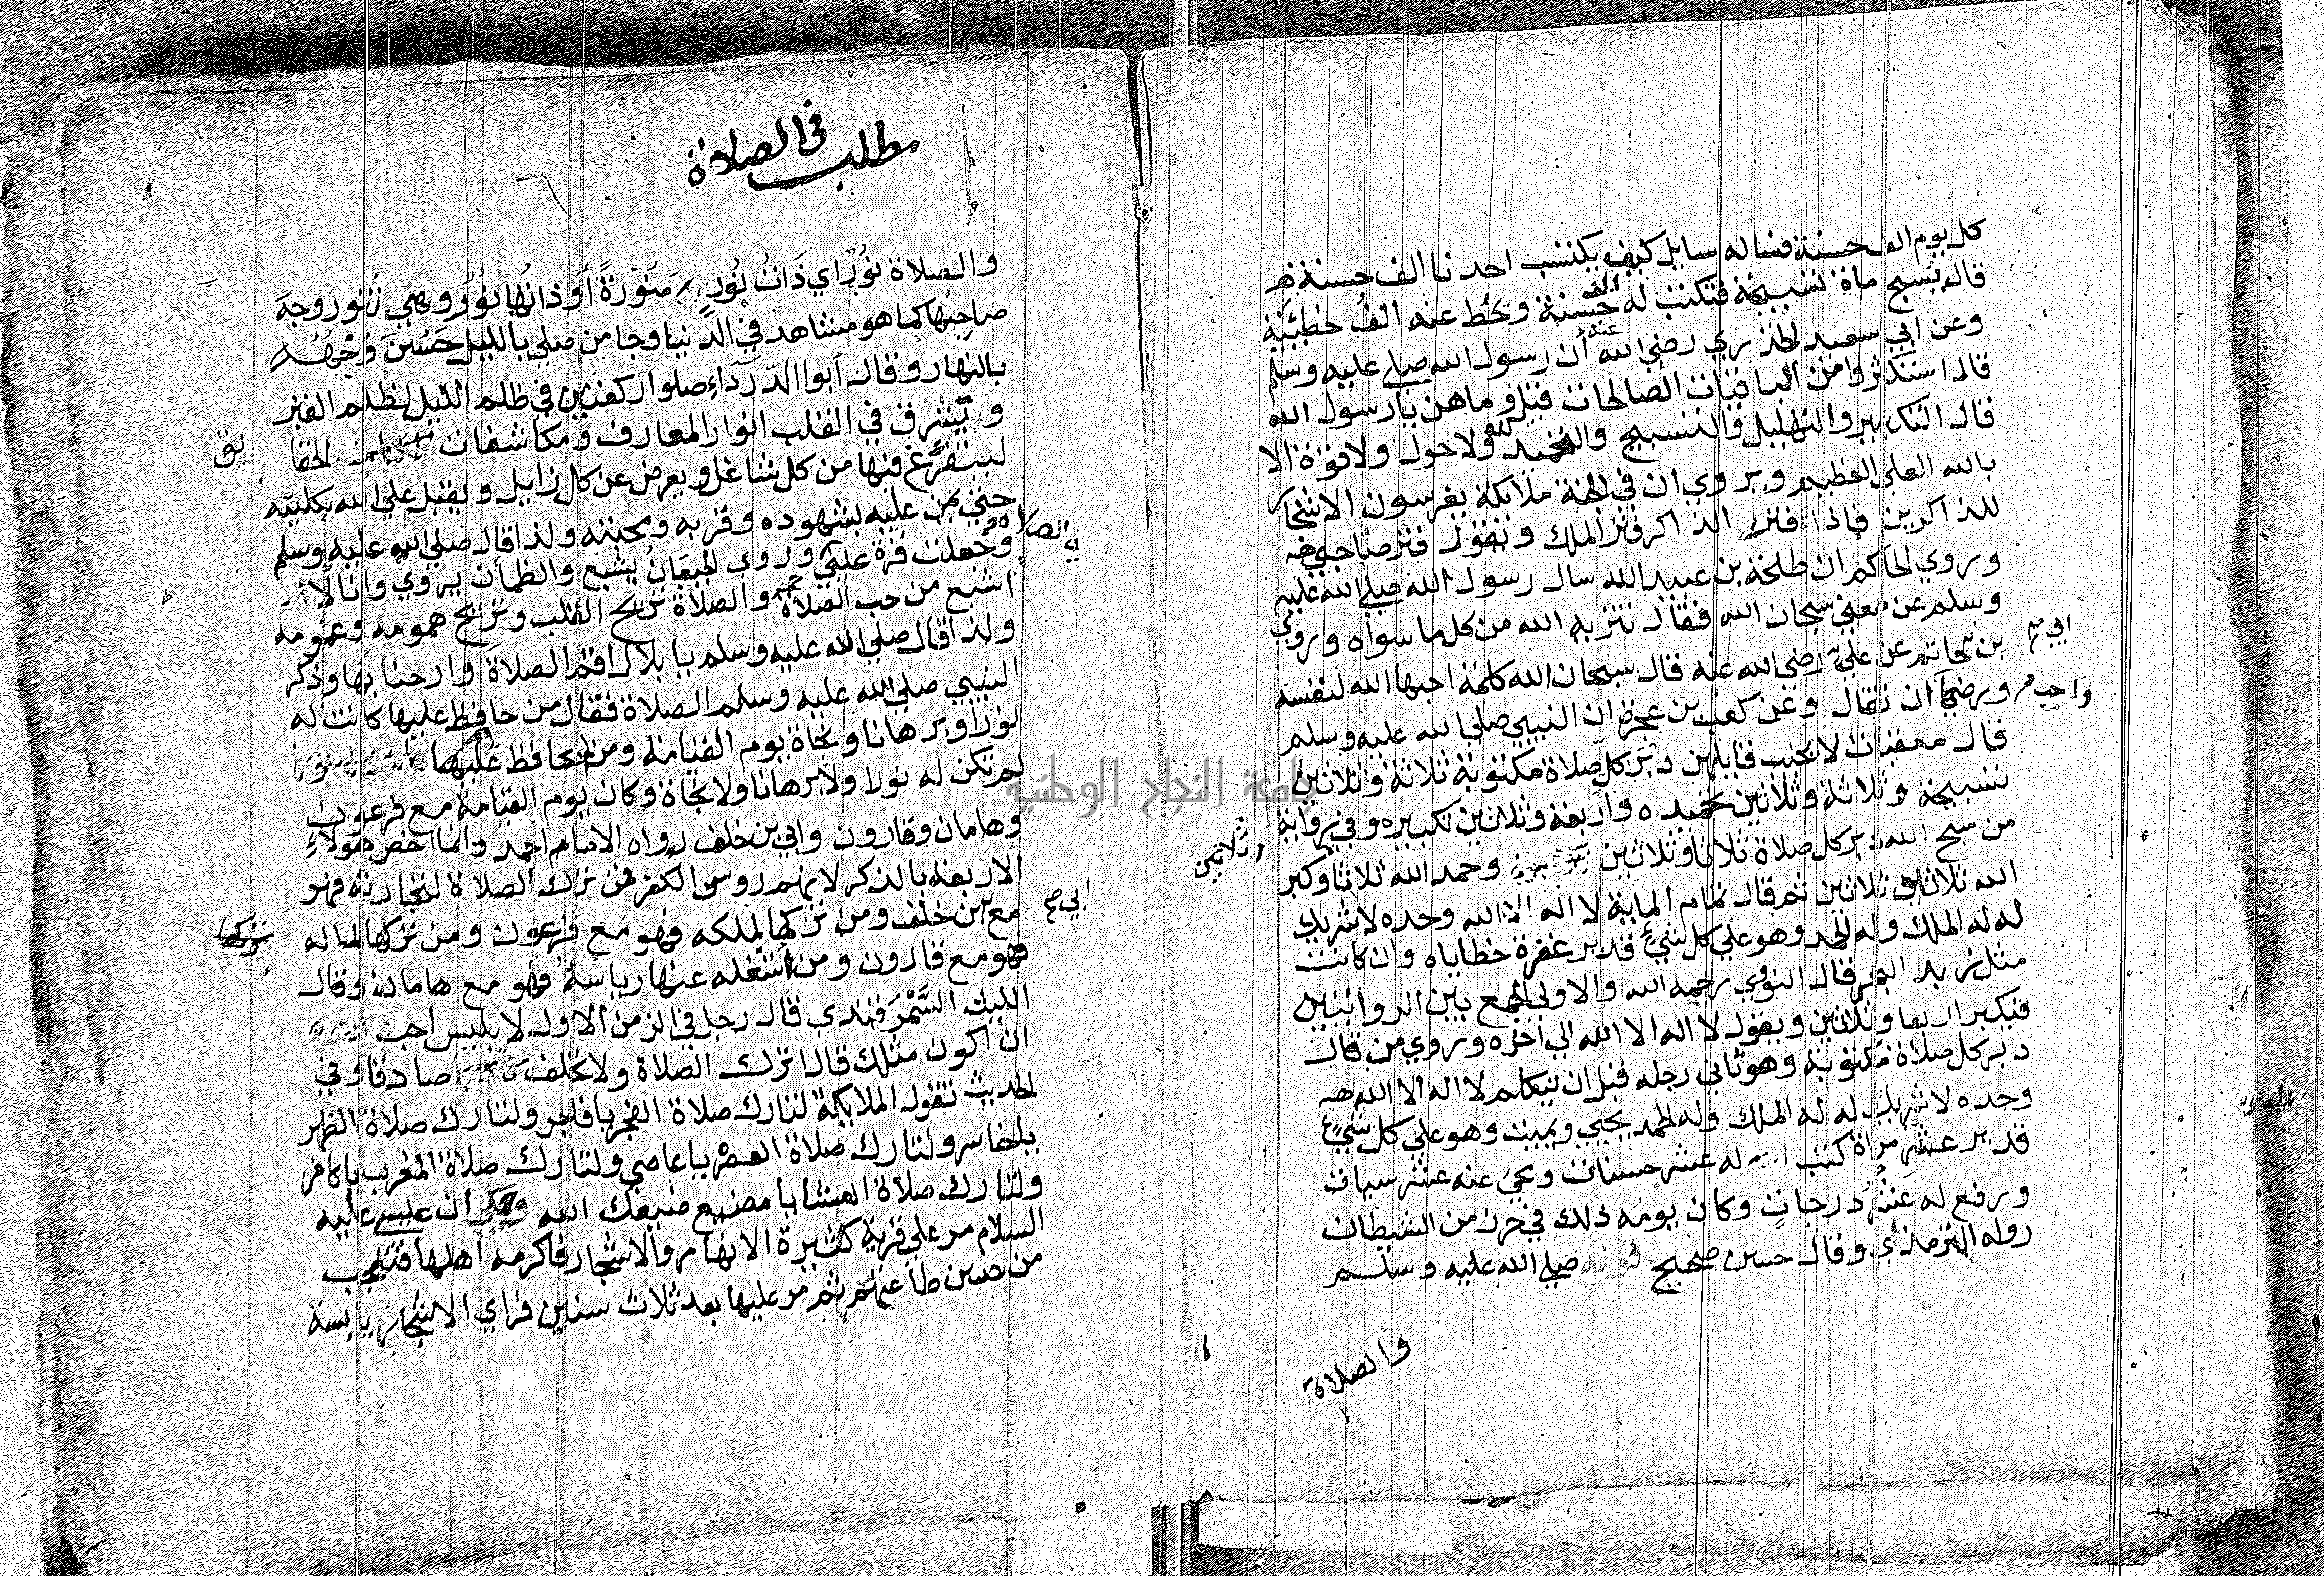 كل يوم الف حسنة فساله سايل كيف يكتسب احدنا الف حسنة
قال يسبح ماة تسبيحة فتكتب له الف حسنة وتحط عنه الف خطيئة
وعن ابي سعيد الخذري رضي الله عنه ان رسول الله صلي عليه وسلم
قال استكثروا من الباقيات الصالحات قيل وما هن يا رسول الله
قال التكبير والتهليل والتسبيح والتحميد لله ولا حول ولا قوة الا
بالله العلي العظيم ويروي ان في الجنة ملايكة يغرسون الاشجار
للذاكرين فاذا فتر الذاكر فتر الملك ويقول فتر صاحبي
وروي الحاكم ان طلحة بن عبيد الله سال رسول الله صلي الله عليه
وسلم عن معني سبحان الله فقال تنزيه الله من كل ما سواه وروي
ابي بن حاتم عن علي رضي الله عنه قال سبحان الله كلمة احبها الله لنفسه
ورضي ان تقال وعن كعب بن عجرة ان النبي صلي الله عليه وسلم
واحب
قال معقبات لا يخيب قايلهن دبر كل صلاة مكتوبة ثلاثة وثلاثين
تسبيحة وثلاثة وثلاثين تحميده واربعة وثلاثين تكبيره وفي رواية
من سبح الله دبر كل صلاة ثلاثا وثلاثين وحمد الله ثلاثا وكبر
وثلاثين
الله ثلاثا وثلاثين ثم قال تمام الماية لا اله الا الله وحده لا شريك
له له الملك وله الحمد وهو علي كل شيء قدير غفرة خطاياه وان كانت
مثل زبد البحر قال النووي رحمه الله والاولي الجمع بين الروايتين
فيكبر اربعا وثلاثين ويقول لا اله الا الله الي اخره وروي من قال
دبر كل صلاة مكتوبة وهو ثاني رجله قبل ان يتكلم لا اله الا الله
وحده لا شريك له له الملك وله الحمد يحيي ويميت وهو علي كل شيء
قدير عشر مراة كتب الله له عشر حسنات ومحي عنه عشر سيات
ورفع له عشر درجات وكان يومه ذلك في حرز من الشيطان
رواه الترمذي وقال حسن صحيح قوله صلي الله عليه وسلم
والصلاة
مطلب في الصلاة
والصلاة نور اي ذات نور منورة او ذاتها نور وهي تنور وجه
صاحبها كما هو مشاهد في الدنيا وجا من صلي بالليل حسن وجهه
بالنهار وقال ابوا الدرداء صلوا ركعتين في ظلم الليل لظلم القبر
وتشرق في القلب انوار المعارف ومكاشفات الحقا
يق
ليتفرغ فيها من كل شاغل ويعرض عن كل زايل ويقبل علي الله بكليته
حتي يمن عليه بشهوده وقربه ومحبته ولذا قال صلي الله عليه وسلم
وجعلت قرة عيني في الصلاة وروي الجيعان يشبع والظمان يروي وانا لا
اشبع من حب الصلاة والصلاة تريح القلب وتزيح همومه وغمومه
ولذا قال صلي الله عليه وسلم يا بلال اقم الصلاة وارحنا بها وذكر
النبي صلي الله عليه وسلم الصلاة فقال من حافظ عليها كانت له
نورا وبرهانا ونجاة يوم القيامة ومن لم يحافظ عليها
لم تكن له نورا ولا برهانا ولا نجاة وكان يوم القيامة مع فرعون
وهامان وقارون وابي بن خلف رواه الامام احمد وانما اخص هولاء
الاربعة بالذكر لانهم روس الكفر فمن ترك الصلاة لتجارته فهو
مع ابي بن خلف ومن تركها لملكه فهو مع فرعون ومن تركها لماله
فهو مع قارون ومن اشغله عنها رياسة فهو مع هامان وقال
الليث السمرقندي قال رجل في الزمن الاول لابليس احب
ان اكون مثلك قال اترك الصلاة ولا تحلف صادقا وفي
الحديث تقول الملايكة لتارك صلاة الفجر يا فاجر ولتارك صلاة الظهر
يا خاسر ولتارك صلاة العصر يا عاصي ولتارك صلاة المغرب يا كافر
ولتارك صلاة العشا يا مضيع ضيعك الله وحكي ان عيسي عليه
السلام مر علي قرية كثيرة الانهار والاشجار فاكرمه اهلها فتعجب
من حسن طاعتهم ثم مر عليها بعد ثلاث سنين فراي الاشجار يابسة
جامعة النجاح الوطنية